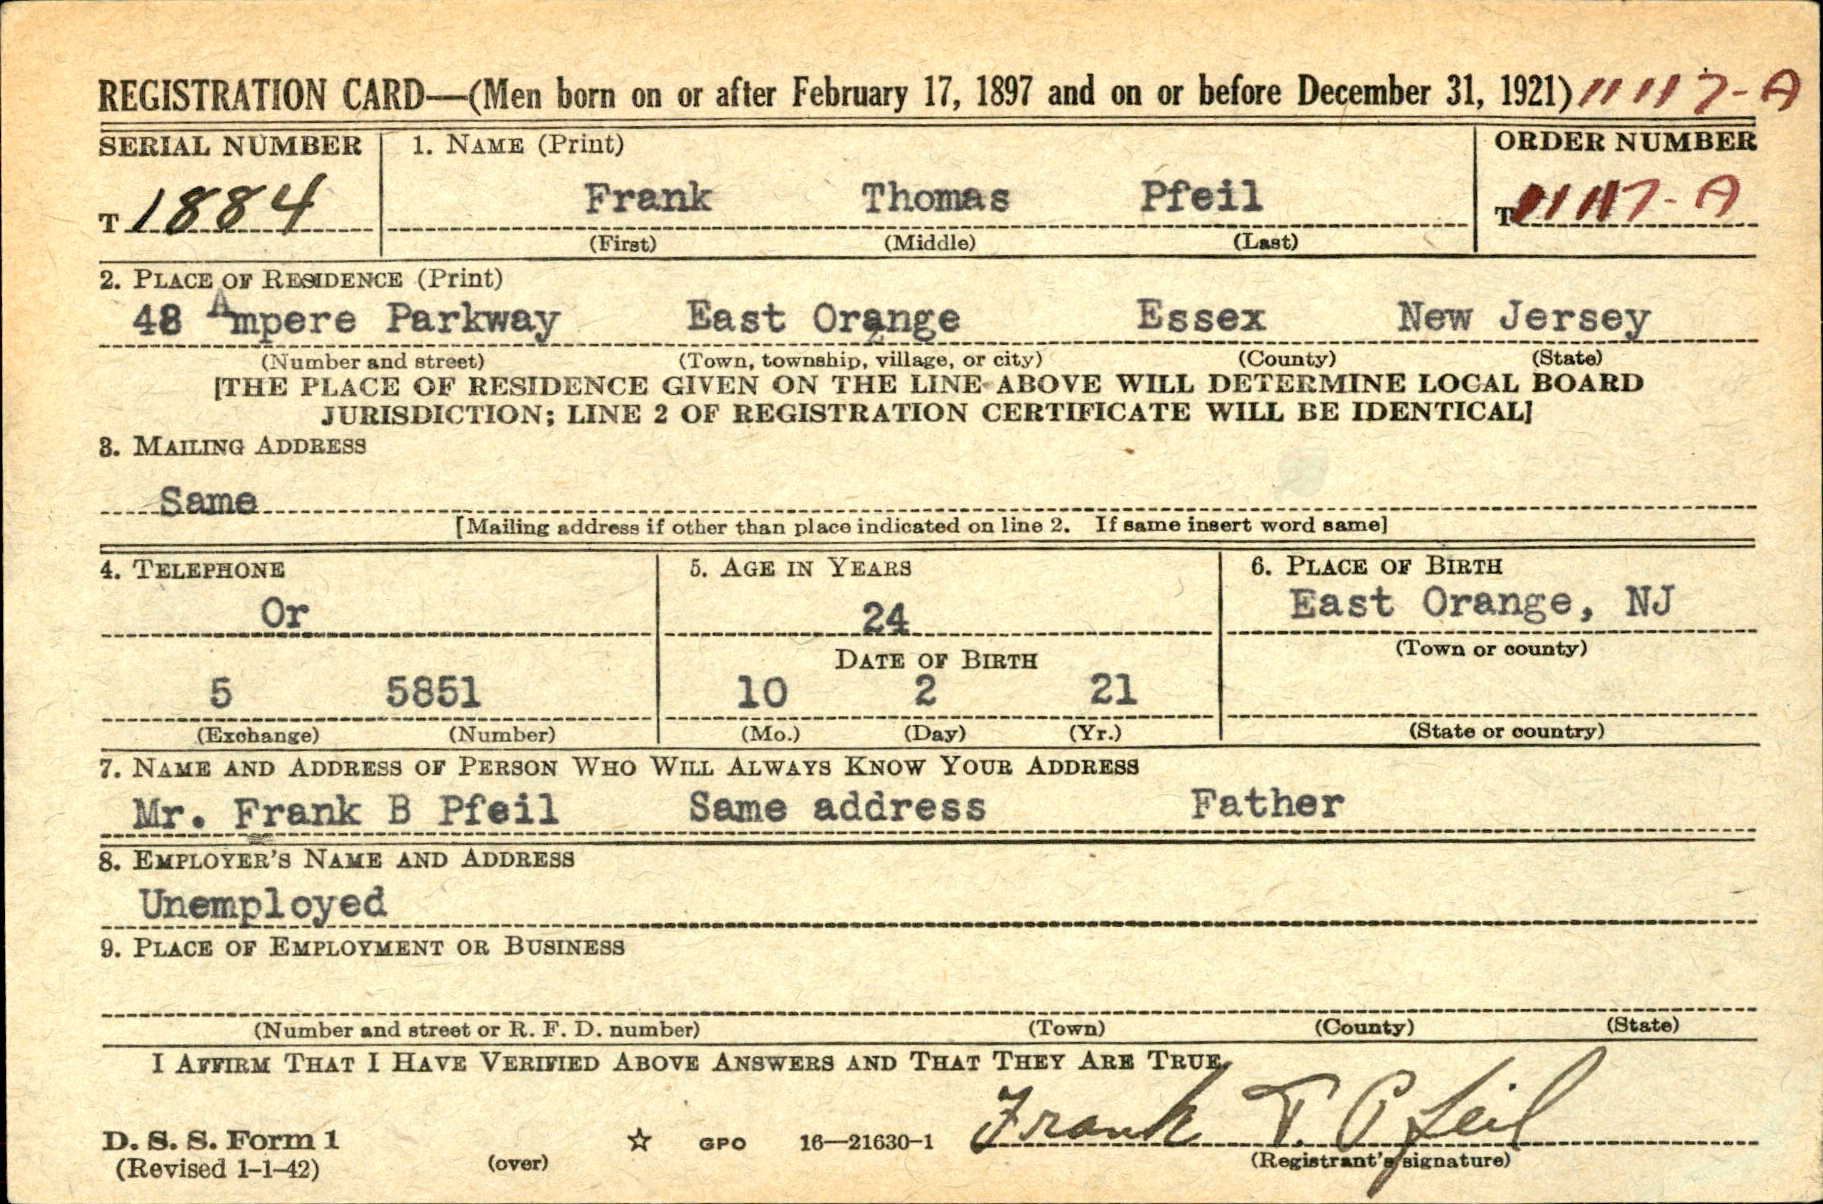 REGISTRATION CARD—(Men born on or after February 17, 1897 and on or before December 31, 1921) 11117-A
SERIAL NUMBER 1. NAME (Print) ORDER NUMBER
T 1884 Frank Thomas Pfeil T 11117-A
(First) (Middle) (Last)
2. PLACE OF RESIDENCE (Print)
48 Ampere Parkway East Orange Essex New Jersey
(Number and street) (Town, township, village, or city) (County) (State)
[THE PLACE OF RESIDENCE GIVEN ON THE LINE ABOVE WILL DETERMINE LOCAL BOARD
JURISDICTION; LINE 2 OF REGISTRATION CERTIFICATE WILL BE IDENTICAL]
3. MAILING ADDRESS
Same
[Mailing address if other than place indicated on line 2. If same insert word same]
4. TELEPHONE 5. AGE IN YEARS 6. PLACE OF BIRTH
Or 24 East Orange, NJ
DATE OF BIRTH (Town or county)
5 5851 10 2 21
(Exchange) (Number) (Mo.) (Day) (Yr.) (State or country)
7. NAME AND ADDRESS OF PERSON WHO WILL ALWAYS KNOW YOUR ADDRESS
Mr. Frank B Pfeil Same address Father
8. EMPLOYER'S NAME AND ADDRESS
Unemployed
9. PLACE OF EMPLOYMENT OR BUSINESS
(Number and street or R. F. D. number) (Town) (County) (State)
I AFFIRM THAT I HAVE VERIFIED ABOVE ANSWERS AND THAT THEY ARE TRUE.
Frank T. Pfeil
D. S. S. Form 1 ☆ GPO 16—21630-1
(Revised 1-1-42) (over) (Registrant's signature)